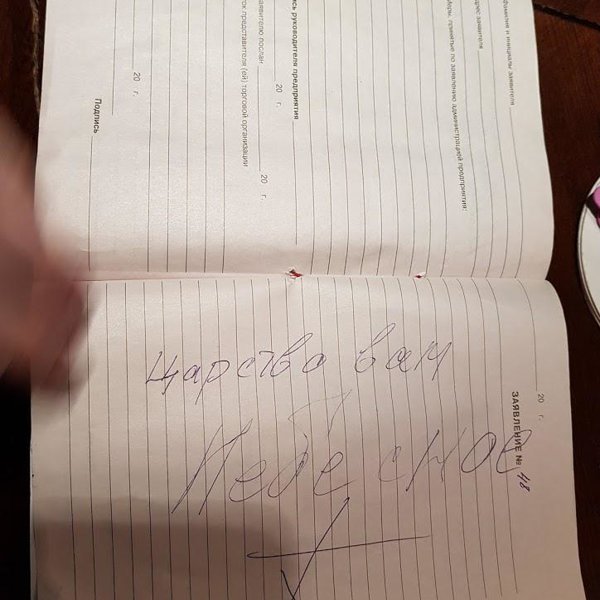 фамилия и инициалы заявителя
рес заявителя
Меры, принятые по заявлению администрацией предприятия:
сь руководителя предприятия
20 г.
заявителю послан 20 г.
ток представителя (ей) торговой организации
20 г.
Подпись
20 г.
ЗАЯВЛЕНИЕ № 48
царство вам
Небесное